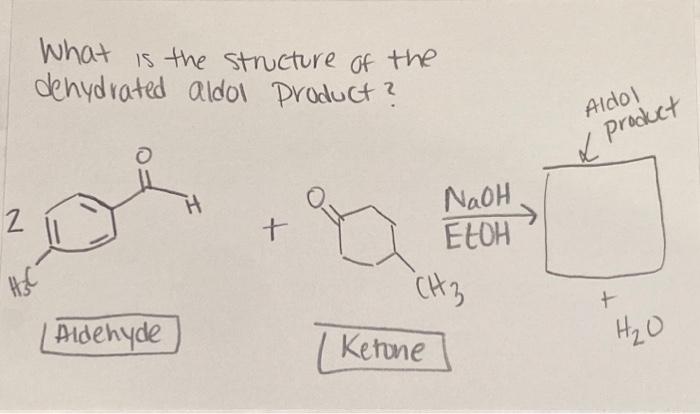 What is the structure of the
dehydrated aldol product?
Aldol
product
O
H
2
H3C
+
O
CH3
NaOH
EtOH
+
H2O
Aldehyde
Ketone